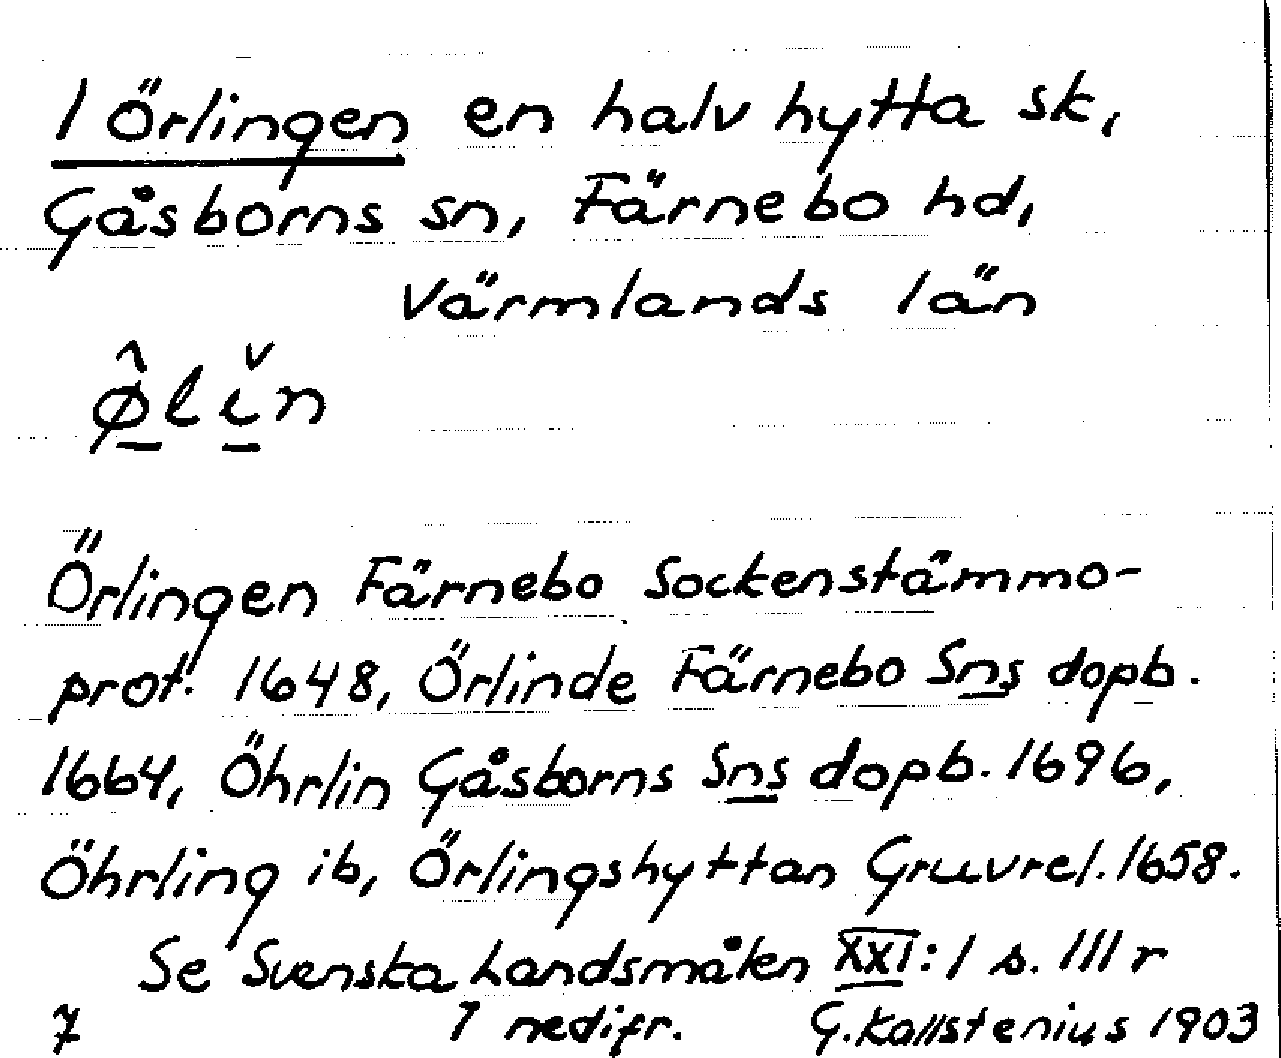 1 Örlingen en halv hytta sk,
Gåsborns sn, Färnebo hd,
Värmlands län
ø̂lĭn
Örlingen Färnebo Sockenstämmo-
prot. 1648, Örlinde Färnebo Sns dopb.
1664, Öhrlin Gåsborns Sns dopb. 1696,
Öhrling ib, Örlingshyttan Gruvrel. 1658.
Se Svenska Landsmålen XXI:1 s. 111 r
7 nedifr. G. Kallstenius 1903